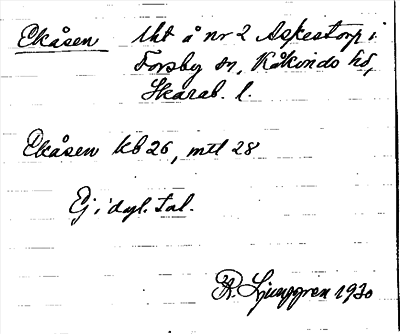 Ekåsen lht å nr 2 Aspestorp i
Forsby sn, Kåkinds hd,
Skarab. l.
Ekåsen kb 26, mtl 28
Ej i dgl. tal.
R. Ljunggren 1930